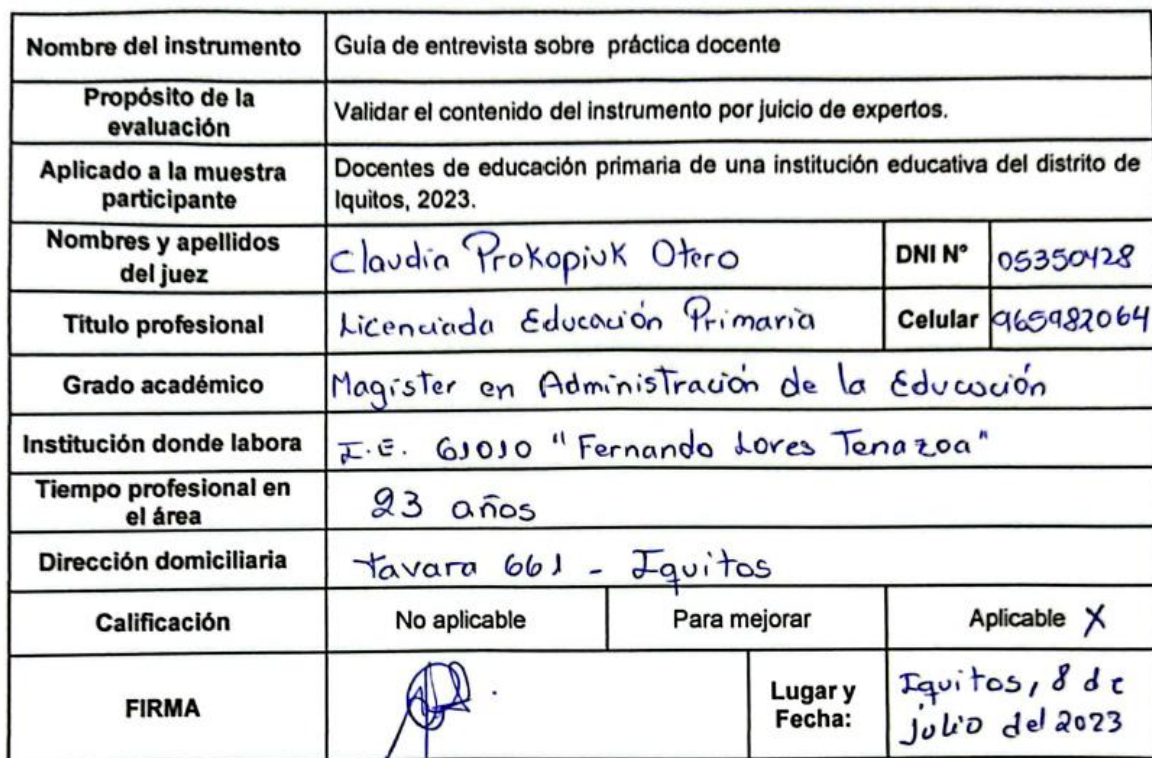 Nombre del instrumento Guía de entrevista sobre práctica docente
Propósito de la
evaluación
Validar el contenido del instrumento por juicio de expertos.
Aplicado a la muestra
participante
Docentes de educación primaria de una institución educativa del distrito de
Iquitos, 2023.
Nombres y apellidos
del juez
Claudia Prokopiuk Otero DNI N° 05350428
Título profesional Licenciada Educación Primaria Celular 965982064
Grado académico Magister en Administración de la Educación
Institución donde labora I.E. 61010 "Fernando Lores Tenazoa"
Tiempo profesional en
el área
23 años
Dirección domiciliaria Tavara 661 - Iquitos
Calificación No aplicable Para mejorar Aplicable X
FIRMA
Lugar y
Fecha:
Iquitos, 8 de
julio del 2023